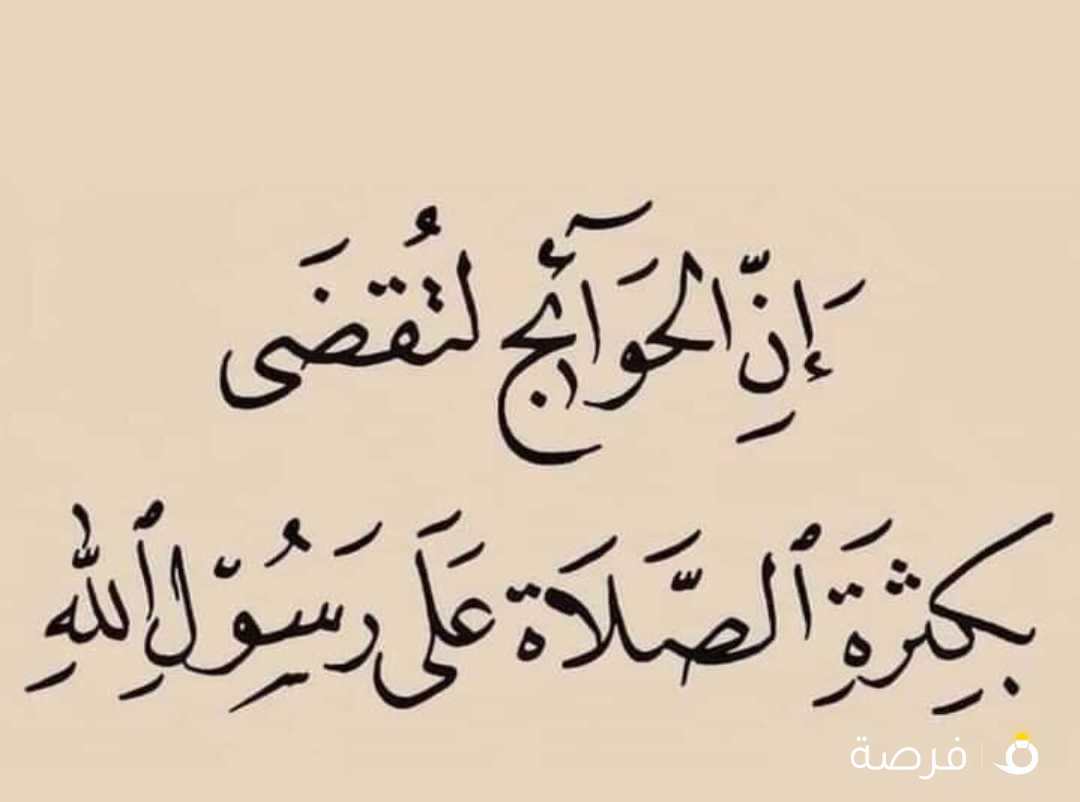 وَإِنَّ الحَوَآئِج لَتُقضَى
بِكِثرَةِ ٱلصَّلَاة عَلَى رَسُولِ ٱللهِ
فرصة